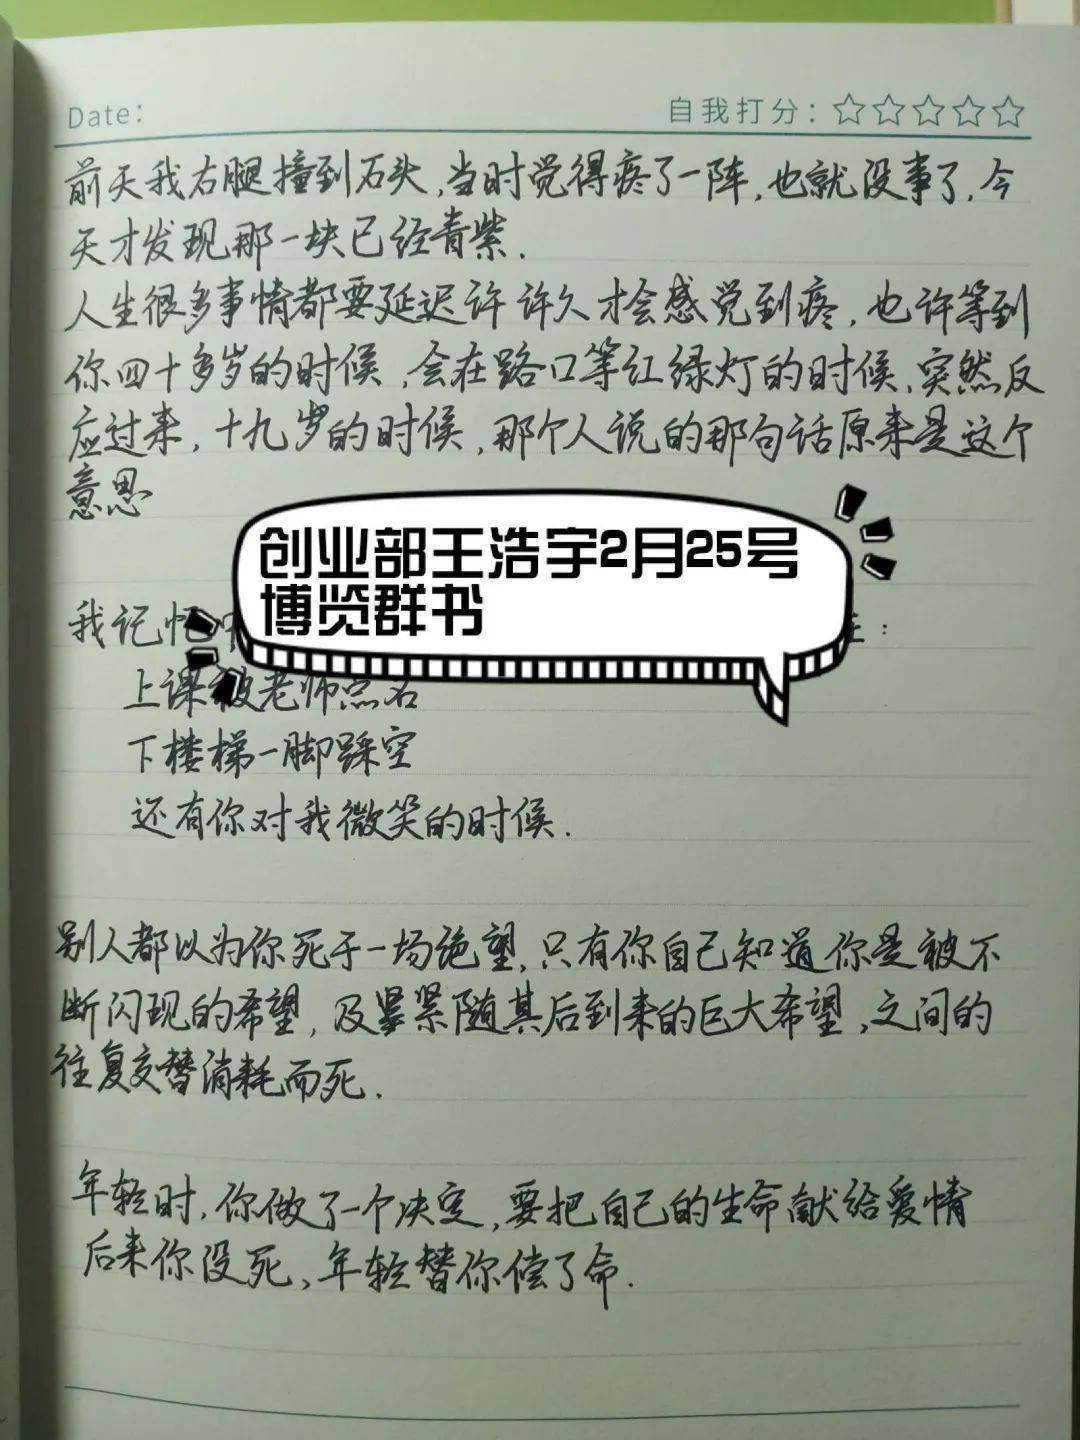 Date:
自我打分:☆☆☆☆☆
前天我右腿撞到石头,当时觉得疼了一阵,也就没事了,今
天才发现那一块已经青紫.
人生很多事情都要延迟许许久才会感觉到疼,也许等到
你四十多岁的时候,会在路口等红绿灯的时候,突然反
应过来,十九岁的时候,那个人说的那句话原来是这个
意思
创业部王浩宇2月25号
博览群书
我记忆中
:
上课被老师点名
下楼梯一脚踩空
还有你对我微笑的时候.
别人都以为你死于一场绝望,只有你自己知道你是被不
断闪现的希望,及紧随其后到来的巨大希望,之间的
往复交替消耗而死.
年轻时,你做了一个决定,要把自己的生命献给爱情
后来你没死,年轻替你偿了命.